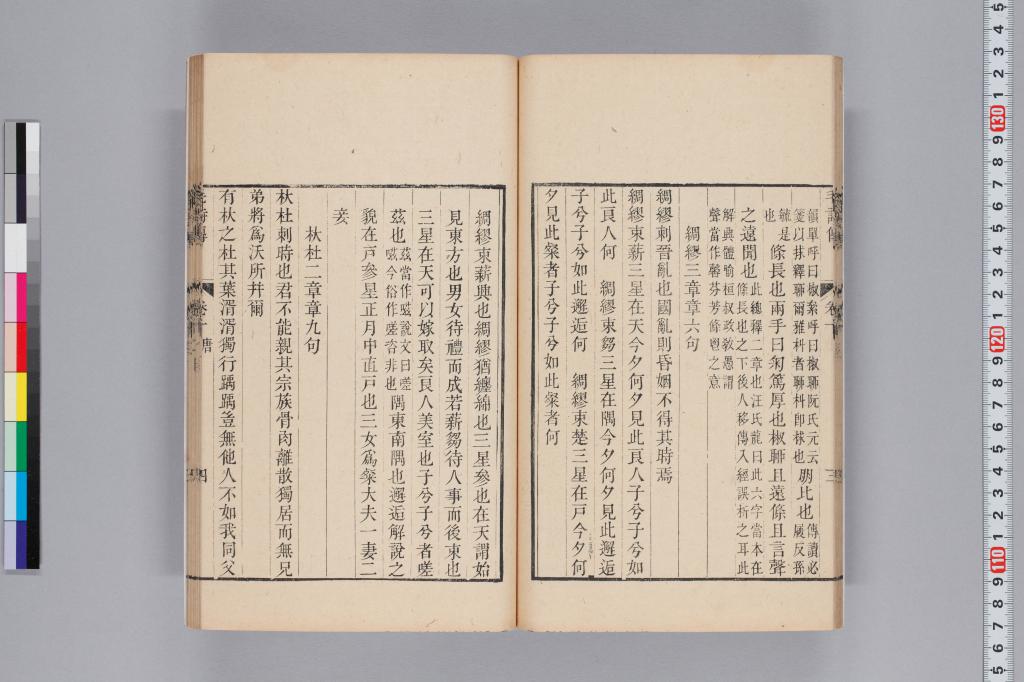 韻單呼曰椒絫呼曰椒聊阮氏元云
箋以捄釋聊爾雅朻者聊朻卽捄也
朋比也
傳讀必
履反孫
毓是
也
條長也兩手曰匊篤厚也椒聊且遠條且言聲
之遠聞也
此總釋二章也汪氏龍曰此六字當本在
條長也之下後人移傳入經誤析之耳此
解與體喻桓叔政敎愚謂
聲當作馨芬芳條鬯之意
綢繆三章章六句
綢繆刺晉亂也國亂則昏姻不得其時焉
綢繆束薪三星在天今夕何夕見此良人子兮子兮如
此良人何　綢繆束芻三星在隅今夕何夕見此邂逅
子兮子兮如此邂逅何　綢繆束楚三星在戶今夕何
夕見此粲者子兮子兮如此粲者何
綢繆束薪興也綢繆猶纏綿也三星參也在天謂始
見東方也男女待禮而成若薪芻待人事而後束也
三星在天可以嫁取矣良人美室也子兮子兮者嗟
茲也
茲當作嗞說文曰嗟
嗞今俗作嗟咨非也
隅東南隅也邂逅解說之
貌在戶參星正月中直戶也三女爲粲大夫一妻二
妾
杕杜二章章九句
杕杜刺時也君不能親其宗族骨肉離散獨居而無兄
弟將爲沃所幷爾
有杕之杜其葉湑湑獨行踽踽豈無他人不如我同父
卷十 唐
四